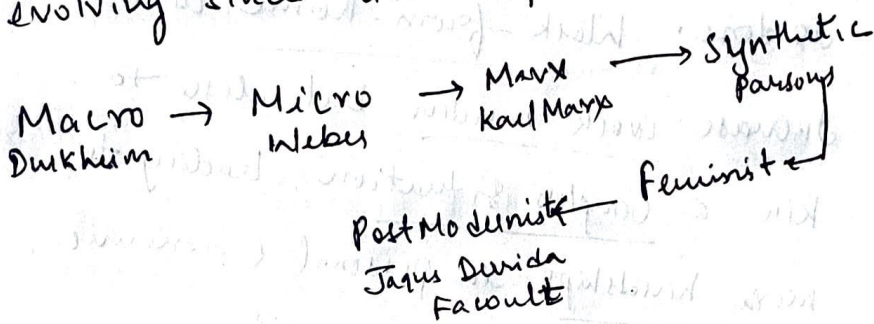 evolving since
Macro → Micro → Marx → Synthetic
Durkheim Weber Karl Marx Parsons
Feminist ←
Post Modernist ←
Jaqus Derida
Facoult